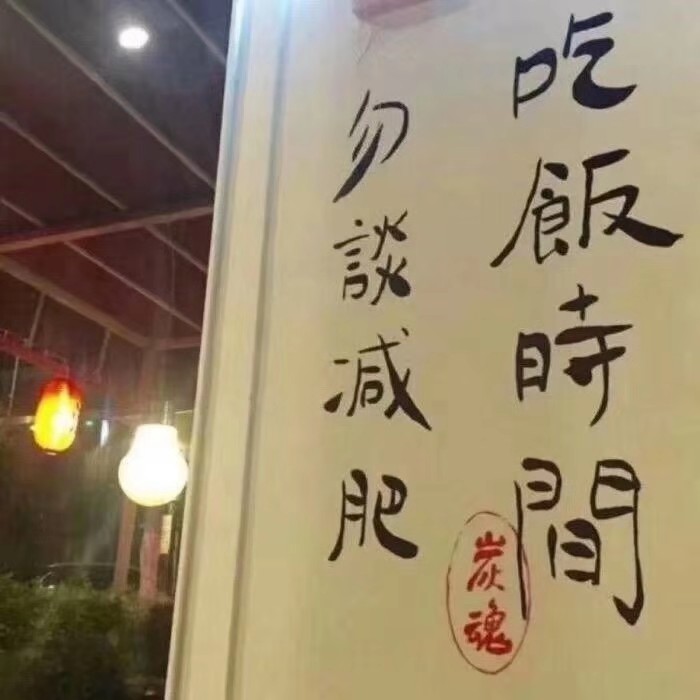 吃飯時間
勿談減肥
炭魂